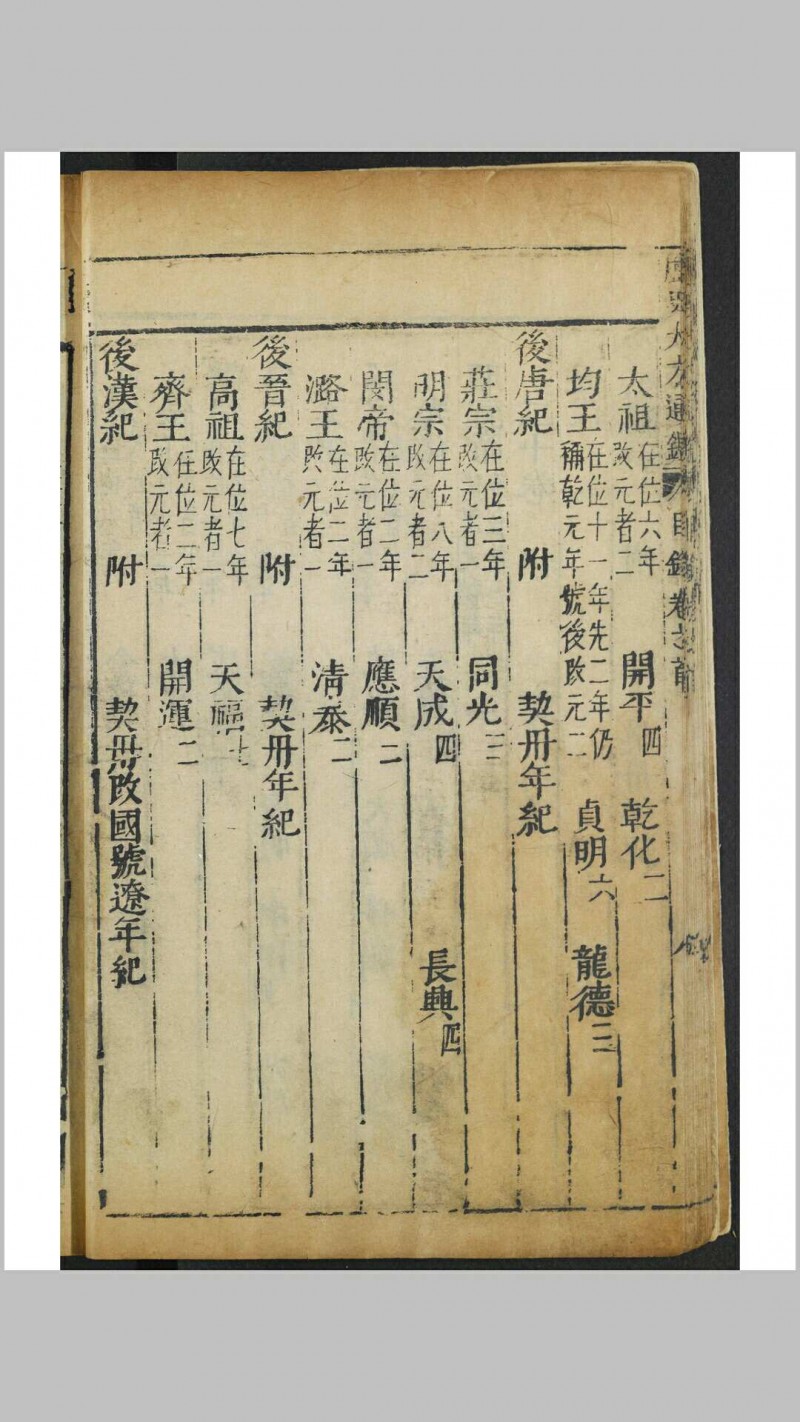 大方通鑑目錄卷之首
太祖 在位六年改元者二 開平四 乾化二
均王 在位十一年先二年仍稱乾元年號後改元二 貞明六 龍德三
後唐紀 附 契丹年紀
莊宗 在位三年改元者一 同光三
明宗 在位八年改元者二 天成四 長興四
閔帝 在位二年改元者一 應順二
潞王 在位二年改元者一 清泰二
後晉紀 附 契丹年紀
高祖 在位七年改元者一 天福七
齊王 在位二年改元者一 開運二
後漢紀 附 契丹改國號遼年紀